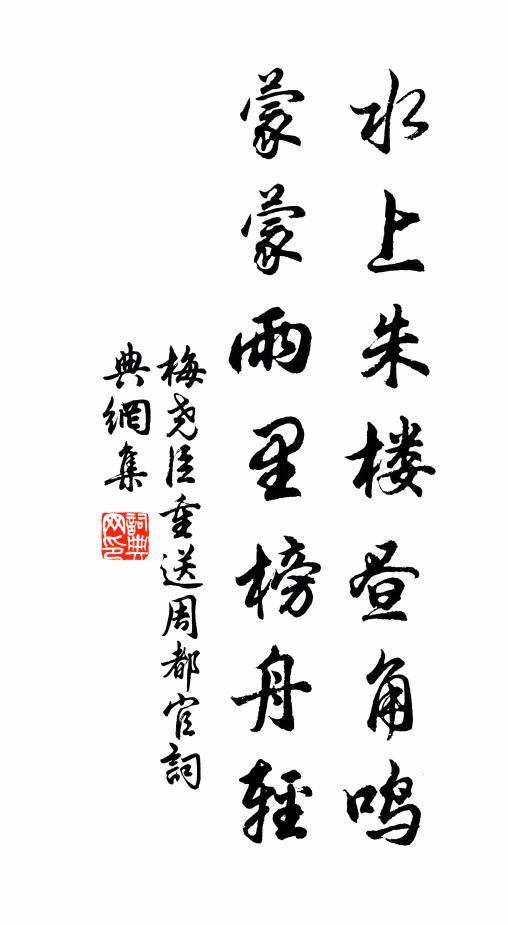 水上朱楼昼角鸣
蒙蒙雨里榜舟輕
梅尧臣重送周都官詞
典網集
詞典网印